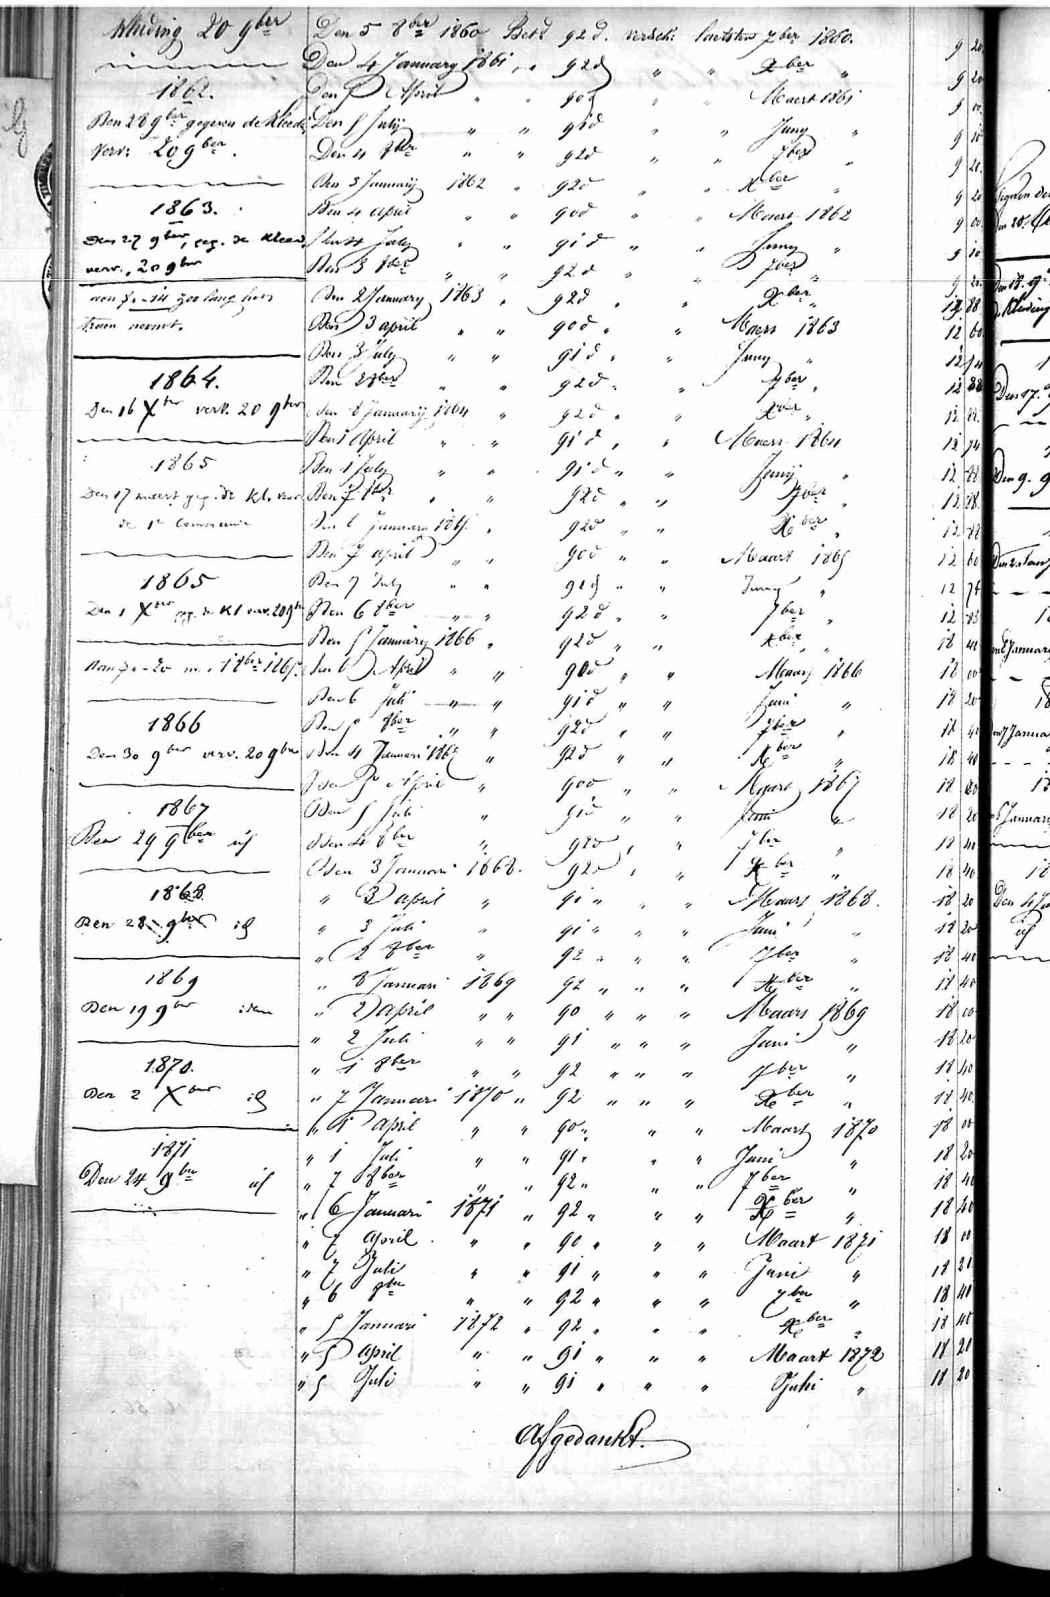 Kleding 20 9ber
1862.
Den 28 9ber gegeven de Kleed.
verv: 20 9ber.
1863.
Den 27 9ber, geg. de Kleed.
verv. 20 9ber
aan f. - 14 zoo lang hij
1864.
Den 16 Xber verv. 20 9ber
1865
Den 17 meert geg. de Kl. voor
de 1e Communie
1865
Den 1 Xber geg. de Kl verv. 20 9ber
1866
Den 30 9ber verv. 20 9ber
1867
Den 29 9ber id
1868
Den 28 9ber id
1869
Den 19 9ber idem
1870.
Den 2 Xber id
1871
Den 24 9ber id
Den 5 8ber 1860 Bet. 92 d. versch. laetsten 7ber 1860. 9 20
Den 4 January 1861 " 92 d " " Xber " 9 20
Den 5 April " " 90 d " " Maert 1861 9 00
Den 5 July " " 91 d " " Juny " 9 10
Den 4 8ber " " 92 d " " 7ber " 9 20
Den 3 January 1862 " 92 d " " Xber " 9 20
Den 4 april " " 90 d " " Maert 1862 9 00
Den 4 July " " 91 d " " Juny " 9 10
Den 3 8ber " " 92 d " " 7ber " 9 20
Den 2 January 1863 " 92 d " " Xber " 12 88
Den 3 april " " 90 d " " Maers 1863 12 60
Den 3 July " " 91 d " " Juny " 12 74
Den 2 8ber " " 92 d " " 7ber " 12 88
Den 8 January 1864 " 92 d " " Xber " 12 88
Den 1 April " " 91 d " " Maers 1864 12 74
Den 1 July " " 91 d " " Junij "
Den 7 8ber " " 92 d " " 7ber " 12 88
Den 6 January 1865 " 92 d " " Xber " 12 88
Den 7 april " " 90 d " " Maart 1865 12 60
Den 7 July " " 91 d " " Juny " 12 74
Den 6 8ber " " 92 d " " 7ber " 12 88
Den 5 January 1866 " 92 d " " Xber " 18 40
Den 6 April " " 90 d " " Maars 1866 18 00
Den 6 Juli " " 91 d " " Juni " 18 20
Den 5 8ber " " 92 d " " 7ber " 18 40
Den 4 Januari 1867 " 92 d " " Xber " 18 40
Den 5 April " 90 d " " Maars 1867 18
Den 5 Juli " 91 d " " Juni " 18 20
Den 4 8ber " 92 d " " 7ber " 18 40
Den 3 Januari 1868. 92 d " " Xber " 18 40
" 3 april " 91 " " Maars 1868. 18 20
" 3 Juli " 91 " " " Juni " 18 20
" 2 8ber " 92 " " " 7ber " 18 40
" 8 Januari 1869 92 " " " Xber " 18 40
" 2 april " " 90 " " " Maars 1869 18 00
" 2 Juli " " 91 " " " Juni " 18 20
" 1 8ber " " 92 " " " 7ber " 18 40
" 7 Januari 1870 " 92 " " " Xber " 18 40
" 1 april " " 90 " " " Maart 1870 18 00
" 1 Juli " " 91 " " " Juni " 18 20
" 7 8ber " " 92 " " " 7ber " 18 40
" 6 Januari 1871 " 92 " " " Xber " 18 40
" 7 april " " 90 " " " Maart 1871 18 00
" 7 Juli " " 91 " " " Juni " 18 20
" 6 8ber " " 92 " " " 7ber " 18 40
" 5 Januari 1872 " 92 " " " Xber " 18 40
" 5 april " " 91 " " " Maart 1872 18 20
" 5 Juli " " 91 " " " Juni " 18 20
Afgedankt.